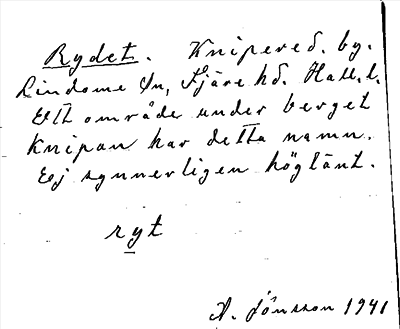 Rydet. Knipered. by.
Lindome sn, Fjäre hd. Hall. l.
Ett område under berget
Knipan har detta namn.
Ej synnerligen höglänt.
ryt
A. Jönsson 1941